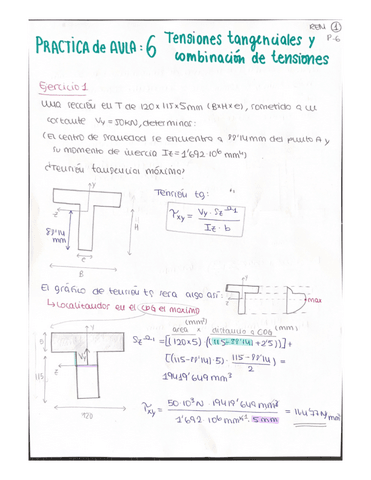 REM 1
P-6
PRACTICA de AULA: 6 Tensiones tangenciales y
combinación de tensiones
Ejercicio 1
Una sección en T de 120x115x5mm (BxHxe), sometida a un
cortante Vy = 50kN, determinar:
(El centro de gravedad se encuentra a 88'14mm del punto A y
su momento de inercia Iz = 1'692·10⁶ mm⁴)
Tensión tangencial máxima
Tensión tg:
τxy = Vy · Sz / Iz · b
y
z
H
88'14
mm
e
B
El gráfico de tensión tg sera algo así:
↳ Localizando en el CDG el maximo
max
(mm²)
area × distancia a CDG (mm)
Sz = [(120x5) · ((115-88'14)+2'5))] +
[((115-88'14)·5) · 115-88'14 / 2] =
19419'649 mm³
y
Vy
z
115
120
τxy = 50·10³N · 19419'649mm³ / 1'692·10⁶ mm⁴ · 5mm =